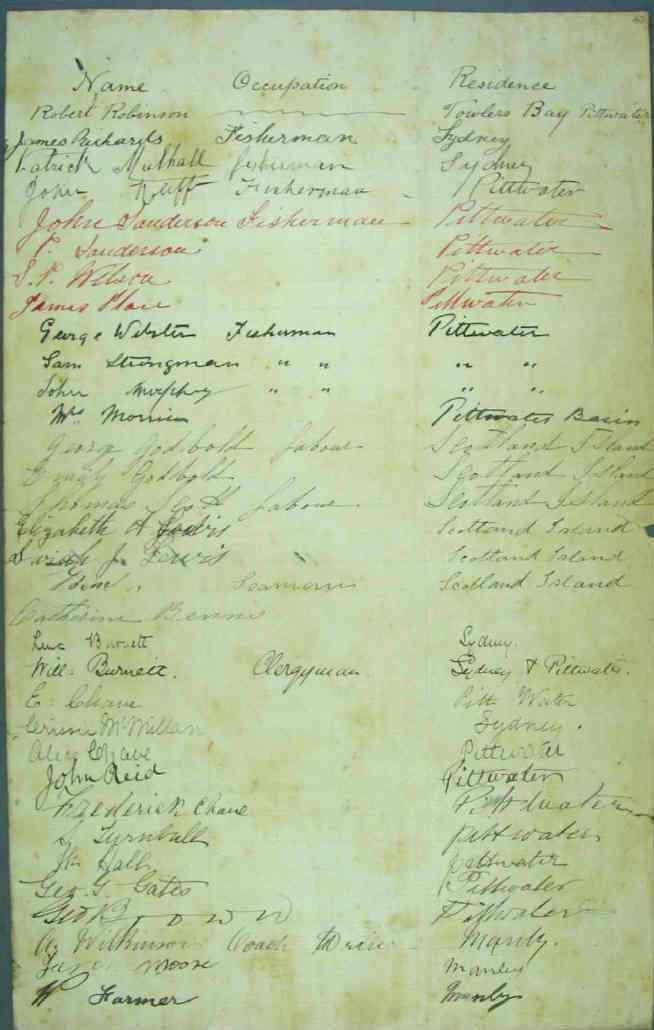 Name Occupation Residence
Robert Robinson Towlers Bay Pittwater
James Richards Fisherman Sydney
Patrick Mulhall fisherman Sydney
John Fisherman Pittwater
John Sanderson Fisherman Pittwater
P. Sanderson Pittwater
S. P. Wilson Pittwater
James Pittwater
George Webster Fisherman Pittwater
Sam Strongman " " " "
John Murphy " " " "
Mrs Morris Pittwater Basin
George Godbold labour Scotland Island
Godbold Scotland Island
Thomas labour Scotland Island
Elizabeth A Scotland Island
Sarah J. Lewis Scotland Island
Seaman Scotland Island
Catherine Bennes
Burnett Sydney.
Will: Burnett. Clergyman Sydney & Pittwater.
E. Chave Pitt Water
McMillan Sydney.
Alex Chave Pittwater
John Reid Pittwater
Frederick Chave Pittwater
Turnbull Pittwater
Hall Pittwater
Geo. G. Gates Pittwater
Geo Brown Pittwater
Wilkinson Coach Driver Manly.
Moore Manley
W Farmer Manly